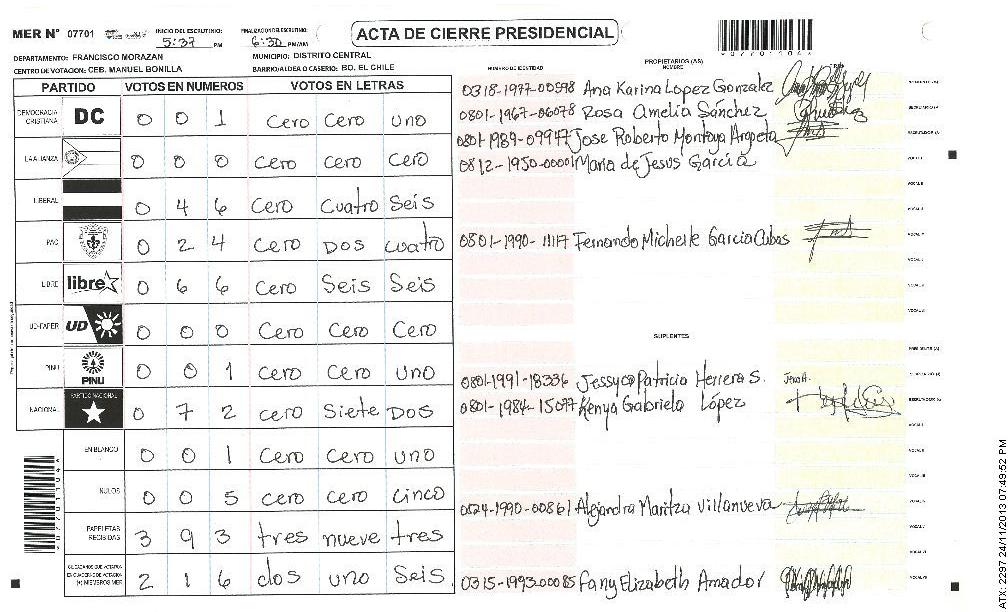 MER N° 07701
INICIO DEL ESCRUTINIO: 5:37 PM
FINALIZACION DEL ESCRUTINIO: 6:30 PM/AM
ACTA DE CIERRE PRESIDENCIAL
DEPARTAMENTO: FRANCISCO MORAZAN
MUNICIPIO: DISTRITO CENTRAL
CENTRO DE VOTACION: CEB. MANUEL BONILLA
BARRIO/ALDEA O CASERIO: BO. EL CHILE
PARTIDO VOTOS EN NUMEROS VOTOS EN LETRAS
DEMOCRACIA CRISTIANA DC 0 0 1 Cero Cero uno
LA ALIANZA 0 0 0 Cero Cero Cero
LIBERAL 0 4 6 Cero Cuatro Seis
PAC 0 2 4 Cero Dos cuatro
LIBRE libre 0 6 6 Cero Seis Seis
UD-FAPER UD 0 0 0 Cero Cero Cero
PINU PINU 0 0 1 Cero Cero uno
NACIONAL PARTIDO NACIONAL 0 7 2 cero Siete Dos
EN BLANCO 0 0 1 Cero Cero uno
NULOS 0 0 5 cero cero cinco
PAPELETAS RECIBIDAS 3 9 3 tres nueve tres
CIUDADANOS QUE VOTARON EN CUADERNO DE VOTACION (+) MIEMBROS MER 2 1 6 dos uno Seis.
NUMERO DE IDENTIDAD
PROPIETARIOS (AS)
NOMBRE
FIRMA
0318-1977-00598 Ana Karina Lopez Gonzalez
0801-1967-06078 Rosa Amelia Sánchez
0801-1989-09747 Jose Roberto Montoya Argeta
0812-1950-00001 Maria de Jesus Garcia
0801-1990-11117 Fernando Michelle Garcia Cubas
SUPLENTES
0801-1991-18336 Jessyca Patricia Herrera S.
0801-1984-15077 Kenya Gabriela López
0824-1990-00861 Alejandra Maritza Villanueva
0315-1993-00085 Fany Elizabeth Amador
ATX: 2297 24/11/2013 07:49:52 PM